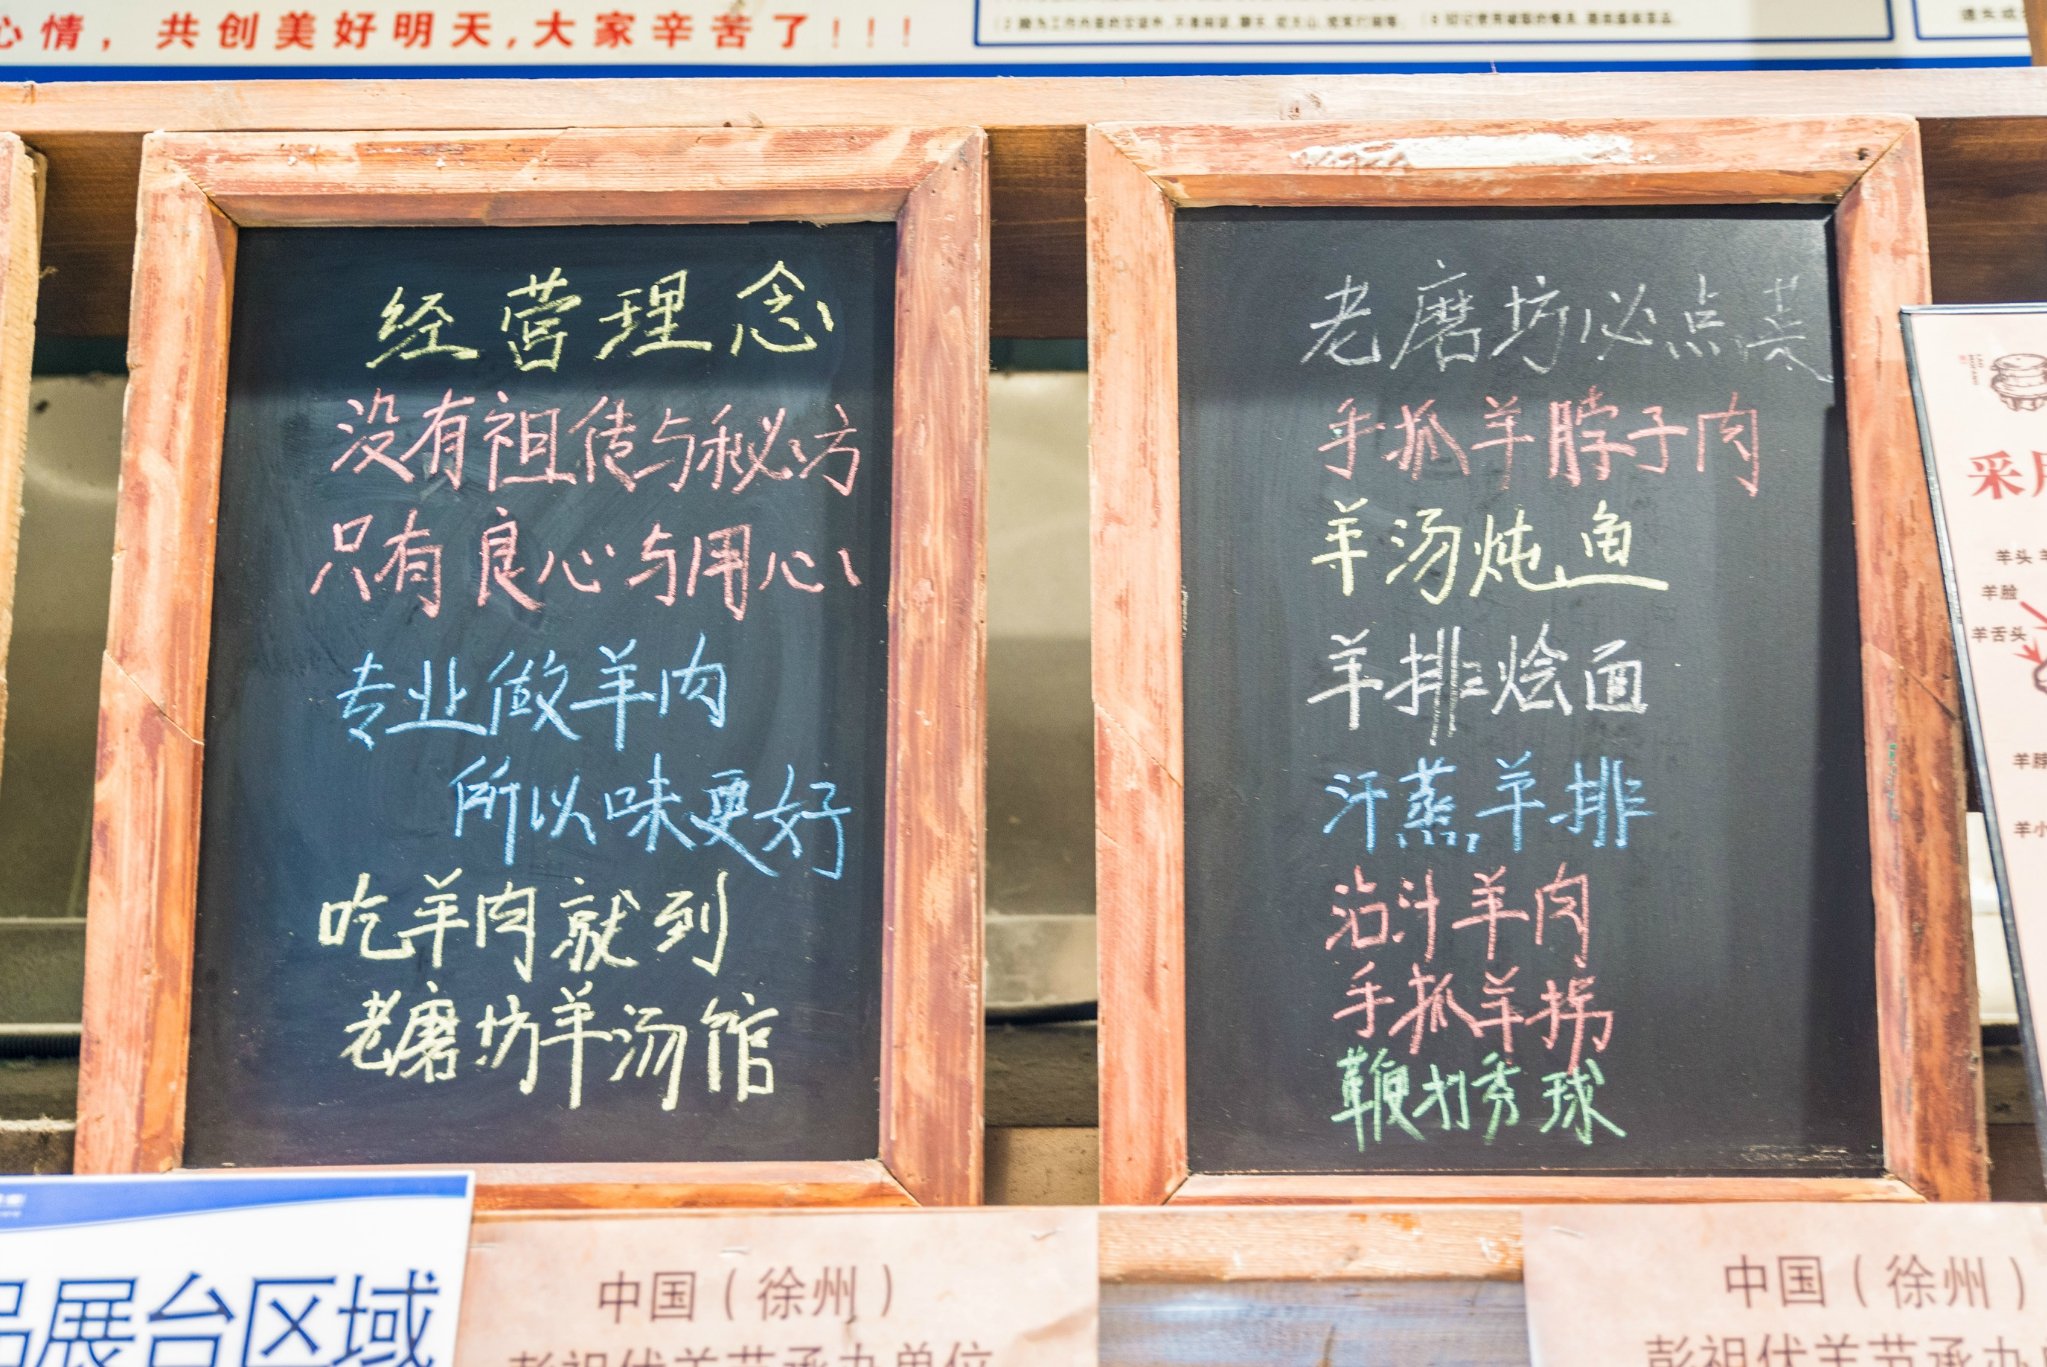 心情，共创美好明天,大家辛苦了！！！
经营理念
没有祖传与秘方
只有良心与用心
专业做羊肉
所以味更好
吃羊肉就到
老磨坊羊汤馆
老磨坊必点菜
手抓羊脖子肉
羊汤炖鱼
羊排烩面
汗蒸羊排
沾汁羊肉
手抓羊拐
鞭打秀球
采用
羊头
羊脸
羊舌头
羊脖
羊小
品展台区域
中国（徐州）
彭祖伏羊节承办单位
中国（徐州）
彭祖伏羊节承办